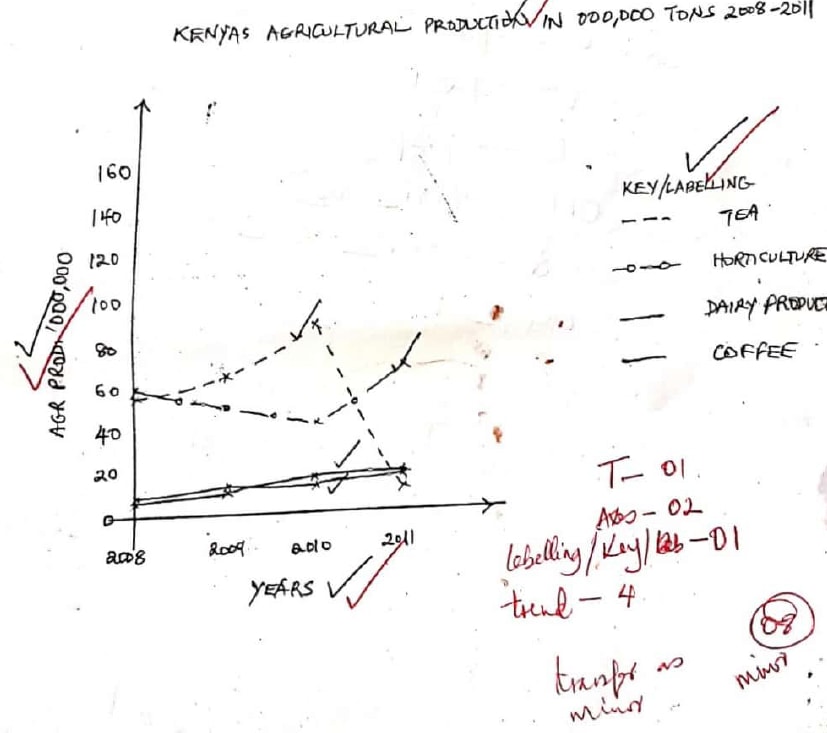 KENYAS AGRICULTURAL PRODUCTION IN 000,000 TONS 2008-2011
160
140
120
100
80
60
40
20
0
AGR PROD. '000,000
2008
2009
2010
2011
YEARS
KEY/LABELLING
TEA
HORTICULTURE
DAIRY PRODUCT
COFFEE
T - 01
Axes - 02
labelling/Key/ - 01
trend - 4
08
transfer as
minor
minor